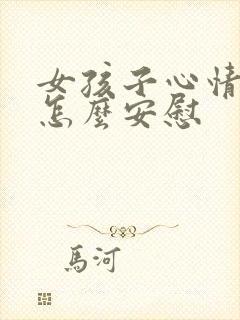 女孩子心情
怎麼安慰
馬河